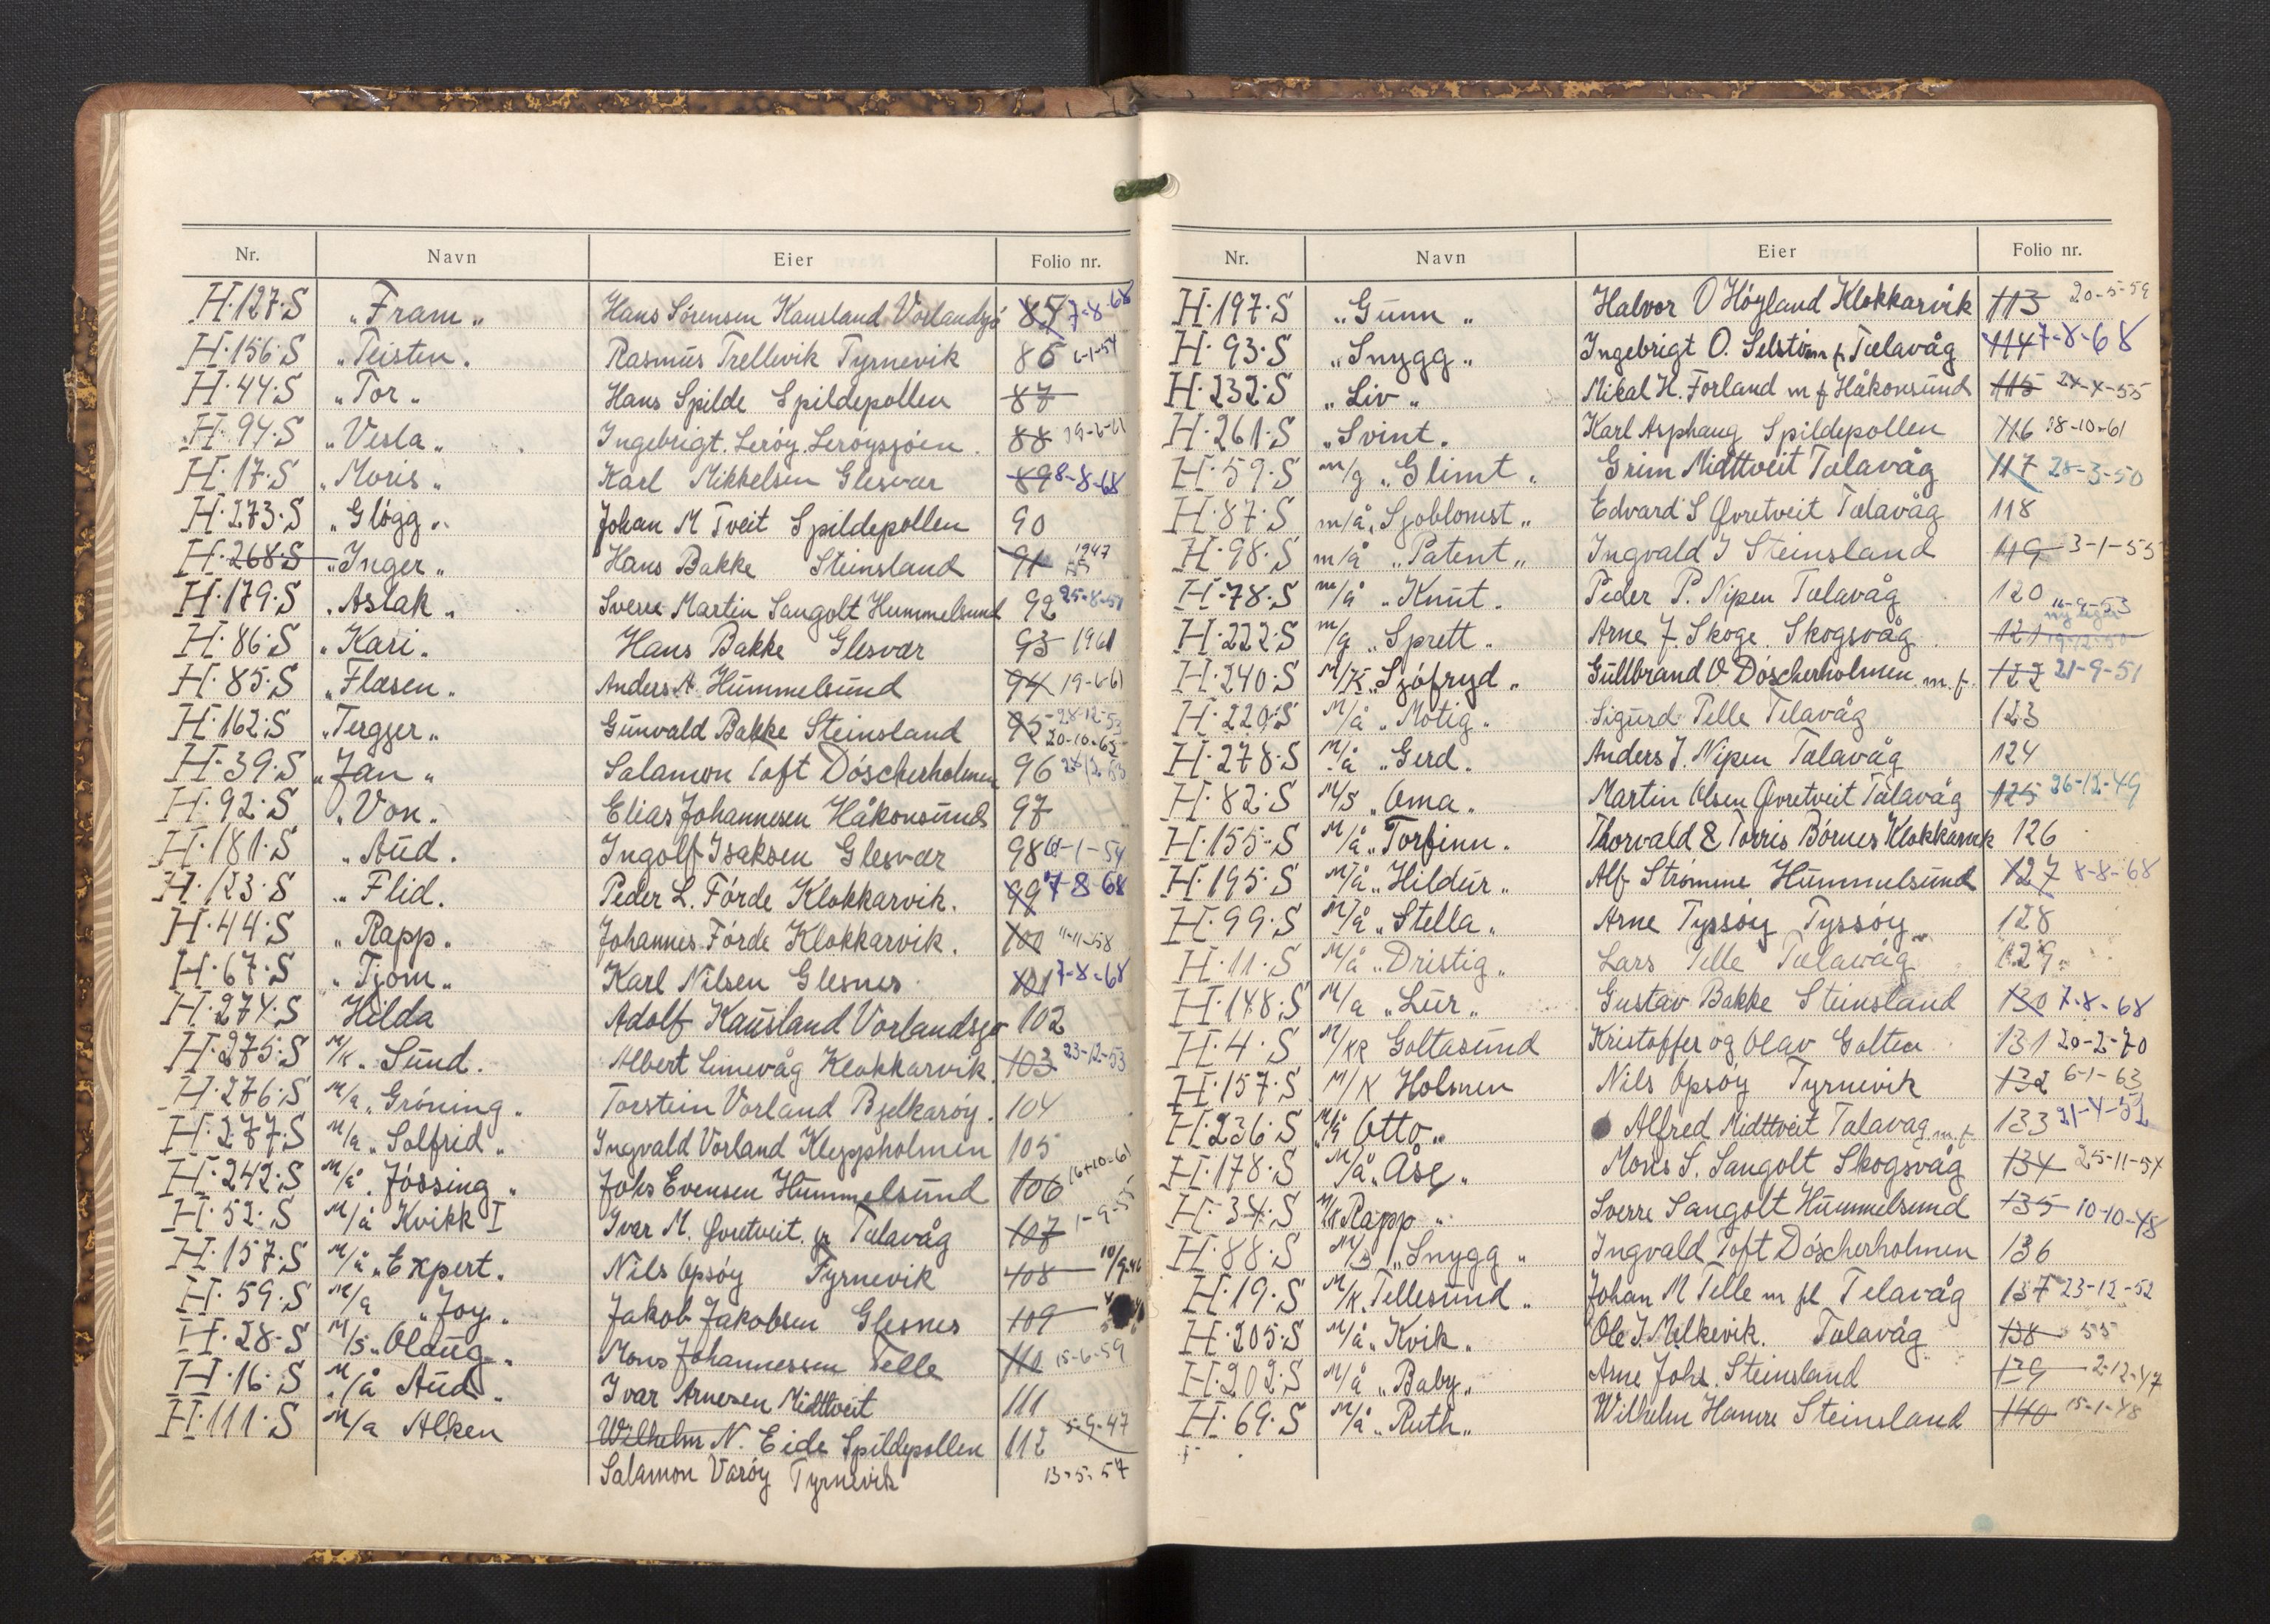 Nr. Navn Eier Folio nr.
H.127.S „Fram„ Hans Sörensen Kausland Vorlandsjö 85 7-8-68
H.156.S „Teisten. Rasmus Trellevik Tyrnevik 86 6-1-54
H.44.S „Tor„ Hans Spilde Spildepollen 87
H.94.S „Vesla„ Ingebrigt Leröy Leröysjöen 88 19-6-61
H.17.S „Moris„ Karl Mikkelsen Glesvær 89 8-8-68
H.273.S „Glögg„ Johan M Tveit Spildepollen 90
H.268.S „Inger„ Hans Bakke Steinsland 91 1947
H.179.S „Aslak„ Sverre Martin Sangolt Hummelsund 92 25-8-51
H.86.S „Kari. Hans Bakke Glesvær 93 1961
H.85.S „Flæsen. Anders A. Hummelsund 94 19-6-61
H.162.S „Tergger„ Gunvald Bakke Steinsland 95 28-12-53
20-10-65
H.39.S „Jan„ Salamon Toft Döscherholmen 96 28/12-53
H.92.S „Von. Elias Johannesen Håkonsund 97
H.181.S „Aud. Ingolf Isaksen Glesvær 98 6-1-54
H.123.S „Flid. Peder L. Förde Klokkarvik. 99 7-8-68
H.44.S „Rapp. Johannes Förde Klokkarvik. 100 11-11-58
H.67.S „Tjom„ Karl Nilsen Glesnes 101 7-8-68
H.274.S Hilda Adolf Kausland Vorlandsjø 102
H.275.S M/K. Sund. Albert Linnevåg Klokkarvik. 103 23-12-53
H.276.S M/a „Gröning. Torstein Vorland Bjelkaröy. 104
H.277.S M/a „Solfrid„ Ingvald Vorland Kleppholmen 105
H.242.S M/å „Jössing„ Johs Evensen Hummelsund 106 16-10-61
H.52.S M/å Kvikk I Ivar M. Øvretveit Telavåg 107 1-9-55
H.157.S M/å „Expert. Nils Opsöy Tyrnevik 108 10/9-46
H.59.S M/a „Joy„ Jakob Jakobsen Glesnes 109
H.28.S M/s „Oldug„ Mons Johannessen Telle 110 15-6-59
H.16.S M/å Aud„ Ivar Arnesen Midttveit 111
H.111.S M/a Alken Wilhelm N. Eide Spildepollen 112 5-9-47
Salamon Varöy Tyrnevik 13-5-57
Nr. Navn Eier Folio nr.
H.197.S „Gunn„ Halvor O Höyland Klokkarvik 113 20-5-59
H.93.S „Snygg„ Ingebrigt O. Selstöm f. Telavåg 114 7-8-68
H.232.S „Liv„ Mikal H. Forland m f Håkonsund 115 24-4-55
H.261.S „Svint. Karl Asphaug Spildepollen 116 18-10-61
H.59.S m/g „Glimt„ Grim Midttveit Telavåg 117 28-3-50
H.87.S m/å „Sjoblomst„ Edvard S Øvretveit Telavåg 118
H.98.S m/å „Patent„ Ingvald J Steinsland 119 3-1-55
H.78.S m/å „Knut. Peder P. Nipen Telavåg 120
H.222.S m/g „Sprett. Arne J. Skoge Skogsvåg 121 11-9-53
19-12-50
H.240.S M/K „Sjöfryd„ Gullbrand O Döscherholmen m. f. 122 21-9-51
H.220.S M/å „Motig„ Sigurd Telle Telavåg 123
H.278.S M/å „Gerd. Anders J. Nipen Telavåg 124
H.82.S M/S „Oma. Martin Olsen Øvretveit Telavåg 125 26-12-49
H.155.S M/å „Torfinn. Thorvald & Torris Börnes Klokkarvik 126
H.195.S M/å „Hildur„ Alf Strømme Hummelsund 127 8-8-68
H.99.S M/å „Stella„ Arne Tyssöy Tyssöy 128
H.11.S M/å „Dristig„ Lars Telle Telavåg 129
H.148.S M/a „Lur„ Gustav Bakke Steinsland 130 7-8-68
H.4.S M/KR Goltasund Kristoffer og Olav Golten 131 20-2-70
H.157.S M/K Holmen Nils Opsöy Tyrnevik 132 6-1-63
H.236.S M/å Otto„ Alfred Midttveit Telavag m. f. 133 21-4-52
H.178.S M/å „Åse„ Mons S. Sangolt Skogsvåg 134 25-11-54
H.34.S M/K Rapp„ Sverre Sangolt Hummelsund 135 10-10-48
H.88.S M/S „Snygg„ Ingvald Toft Döscherholmen 136
H.19.S M/K. Tellesund„ Johan M Telle m fl Telavåg 137 23-12-52
H.205.S M/å „Kvik„ Ole J. Milkevik. Telavåg 138 55
H.202.S M/å „Baby„ Arne Johs. Steinsland 139 2-12-47
H.69.S M/å „Ruth„ Wilhelm Hamre Steinsland 140 15-1-48